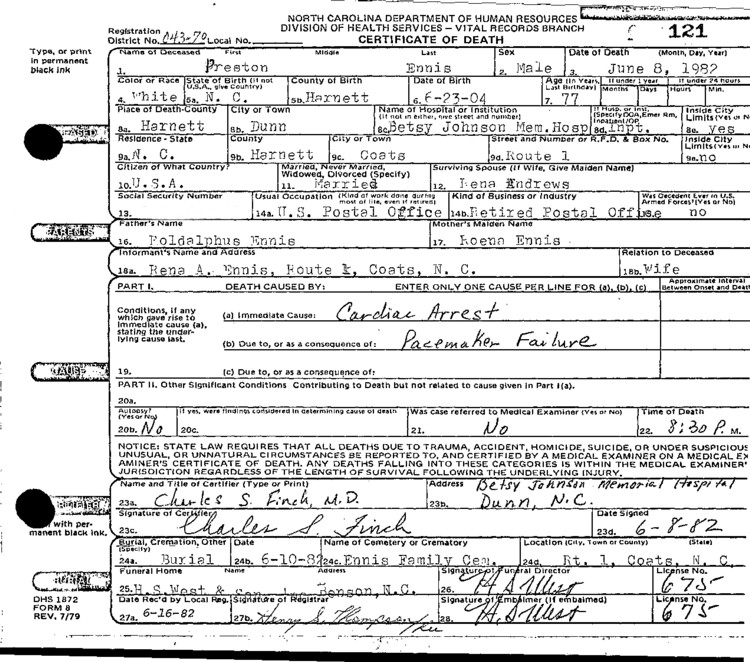 NORTH CAROLINA DEPARTMENT OF HUMAN RESOURCES
DIVISION OF HEALTH SERVICES – VITAL RECORDS BRANCH
CERTIFICATE OF DEATH
121
Registration
District No. 043-70 Local No.
Type, or print
in permanent
black ink
Name of Deceased First Middle Last Sex Date of Death (Month, Day, Year)
1. Preston Ennis 2. Male 3. June 8, 1982
Color or Race State of Birth (If not U.S.A., give Country) County of Birth Date of Birth Age (In Years, Last Birthday) If under 1 year Months Days If under 24 hours Hours Min.
4. White 5a. N. C. 5b. Harnett 6. 6-23-04 7. 77
Place of Death-County City or Town Name of Hospital or Institution (If not in either, give street and number) If Hosp. or Inst. (Specify DOA, Emer Rm, Inpatient/OP) Inside City Limits (Yes or N
8a. Harnett 8b. Dunn 8c. Betsy Johnson Mem. Hosp 8d. inpt. 8e. yes
Residence - State County City or Town Street and Number or R.F.D. & Box No. Inside City Limits (Yes or N
9a. N. C. 9b. Harnett 9c. Coats 9d. Route 1 9e. no
Citizen of What Country? Married, Never Married, Widowed, Divorced (Specify) Surviving Spouse (If Wife, Give Maiden Name)
10. U.S.A. 11. Married 12. Andrews
Social Security Number Usual Occupation (Kind of work done during most of life, even if retired) Kind of Business or Industry Was Decedent Ever in U.S. Armed Forces? (Yes or No)
13. 14a. U.S. Postal Office 14b. Retired Postal Office no
PARENTS
Father's Name Mother's Maiden Name
16. Ennis 17. Ennis
Informant's Name and Address Relation to Deceased
18a. Rena A. Ennis, Route 1, Coats, N. C. 18b. Wife
PART I. DEATH CAUSED BY: ENTER ONLY ONE CAUSE PER LINE FOR (a), (b), (c) Approximate Interval Between Onset and Death
Conditions, if any
which gave rise to
immediate cause (a),
stating the under-
lying cause last.
(a) Immediate Cause: Cardiac Arrest
(b) Due to, or as a consequence of: Pacemaker Failure
CAUSE
19. (c) Due to, or as a consequence of:
PART II. Other Significant Conditions Contributing to Death but not related to cause given in Part I(a).
20a.
Autopsy? (Yes or No) If yes, were findings considered in determining cause of death Was case referred to Medical Examiner (Yes or No) Time of Death
20b. No 20c. 21. No 22. 8:30 P. M.
NOTICE: STATE LAW REQUIRES THAT ALL DEATHS DUE TO TRAUMA, ACCIDENT, HOMICIDE, SUICIDE, OR UNDER SUSPICIOUS
UNUSUAL, OR UNNATURAL CIRCUMSTANCES BE REPORTED TO, AND CERTIFIED BY A MEDICAL EXAMINER ON A MEDICAL EX
AMINER'S CERTIFICATE OF DEATH. ANY DEATHS FALLING INTO THESE CATEGORIES IS WITHIN THE MEDICAL EXAMINER'
JURISDICTION REGARDLESS OF THE LENGTH OF SURVIVAL FOLLOWING THE UNDERLYING INJURY.
Name and Title of Certifier (Type or Print) Address Betsy Johnson Memorial Hospital
23a. Charles S. Finch, M.D. 23b. Dunn, N.C.
Signature of Certifier Date Signed
with per-
manent black ink.
23c. Charles S. Finch 23d. 6-8-82
Burial, Cremation, Other (Specify) Date Name of Cemetery or Crematory Location (City, Town or County) (State)
24a. Burial 24b. 6-10-82 24c. Ennis Family Cem. 24d. Rt. 1, Coats, N. C.
Funeral Home Name Address Signature of Funeral Director License No.
25. H. S. West & Benson, N.C. 26. H S West 675
DHS 1872
FORM 8
REV. 7/79
Date Rec'd by Local Reg. Signature of Registrar Signature of Embalmer (If embalmed) License No.
27a. 6-16-82 27b. Henry S. Thompson 28. H. S West 675